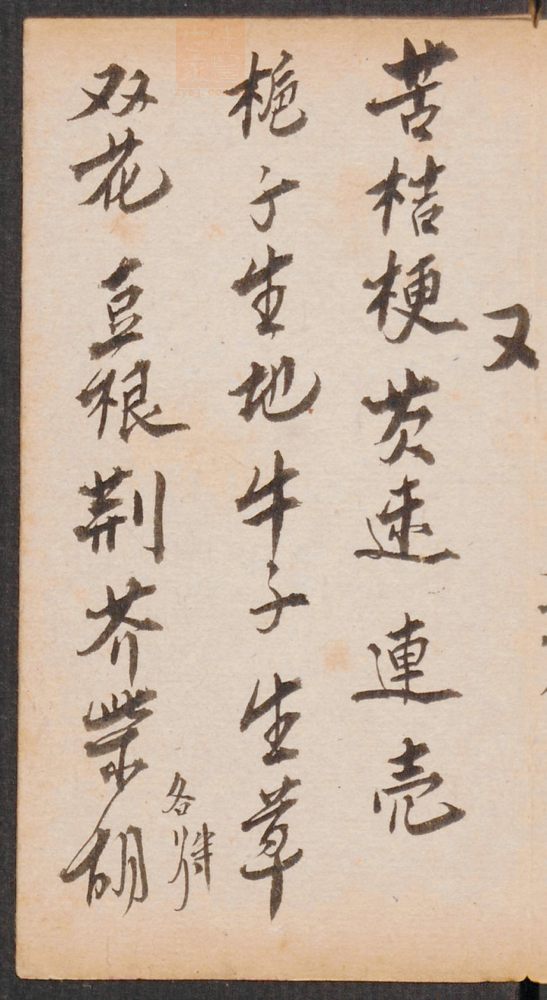 又
苦桔梗 芡速 連壳
栀子生地 牛子 生草
双花 豆根 荆芥柴胡
各